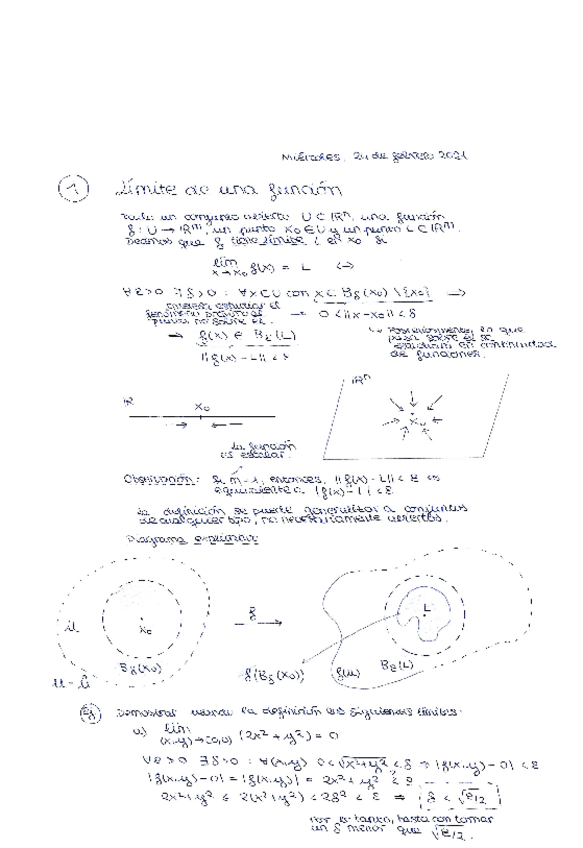 Miércoles, 24 de febrero 2021
1 Límite de una función
Dado un conjunto abierto U ⊂ ℝⁿ, una función
f: U → ℝᵐ, un punto x₀ ∈ U y un punto L ⊂ ℝᵐ.
Decimos que f tiene límite L en x₀ si
lim x→x₀ f(x) = L ⟺
∀ε>0 ∃δ>0 : ∀x∈U con x ∈ Bδ(x₀) \ {x₀} ⟹
0 < ||x-x₀|| < δ
⟹ f(x) ∈ Bε(L)
||f(x) - L|| < ε
Posteriormente, lo que
pasa sobre él se
estudiará en continuidad
de funciones.
ℝ
x₀
ℝⁿ
x₀
la función
es escalar.
Observación: Si m=1, entonces, ||f(x) - L|| < ε es
equivalente a |f(x) - L| < ε
La definición se puede generalizar a conjuntos
de cualquier tipo, no necesariamente abiertos.
Diagrama explicativo:
U
x₀
Bδ(x₀)
f
L
f(Bδ(x₀))
f(U)
Bε(L)
Ej Demostrar usando la definición los siguientes límites:
a) lim (x,y)→(0,0) (2x² + y²) = 0
∀ε>0 ∃δ>0 : ∀(x,y) 0 < √x²+y² < δ ⟹ |f(x,y) - 0| < ε
|f(x,y) - 0| = |f(x,y)| = 2x² + y² < ε
2x²+y² ≤ 2(x²+y²) < 2δ² < ε ⟹ δ < √ε/2
Por lo tanto, basta con tomar
un δ menor que √ε/2.